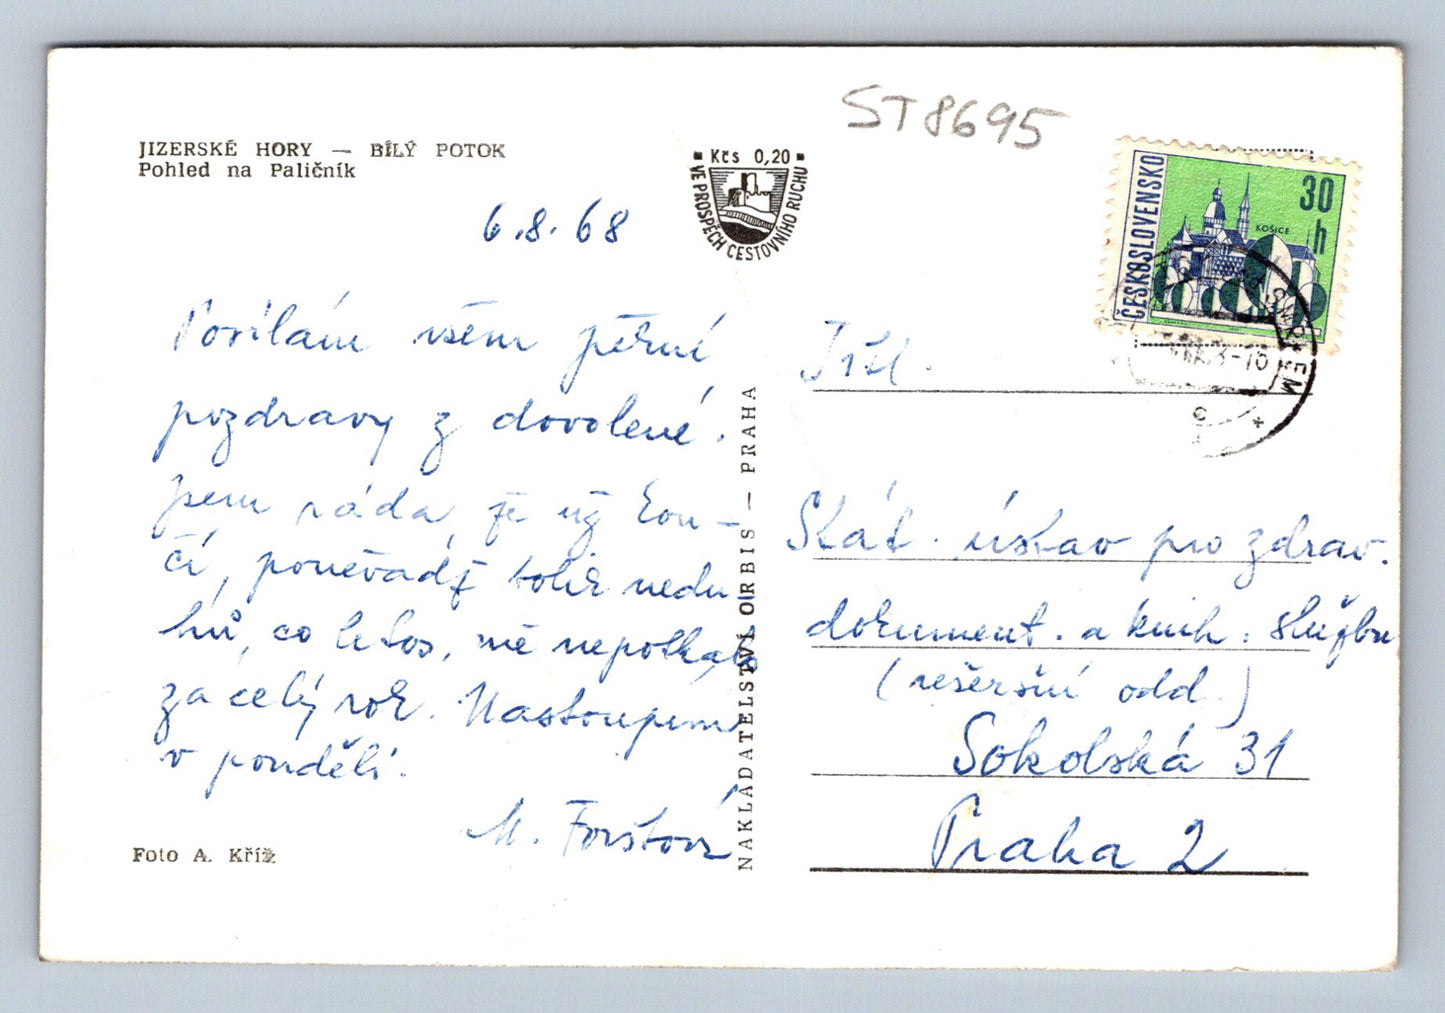 JIZERSKÉ HORY — BÍLÝ POTOK
Pohled na Paličník
6.8.68
Posílám všem pěkné
pozdravy z dovolené.
Jsem ráda, že už kon-
čí, poněvadž tolik nedu-
hů, co letos, mě nepotkalo
za celý rok. Nastoupím
v pondělí.
M. Forštová
Foto A. Kříž
Kčs 0,20
VE PROSPĚCH CESTOVNÍHO RUCHU
NAKLADATELSTVÍ ORBIS — PRAHA
ST8695
ČESKOSLOVENSKO
30 h
KOŠICE
Stát. ústav pro zdrav.
dokument. a knih. službu
(rešeršní odd.)
Sokolská 31
Praha 2